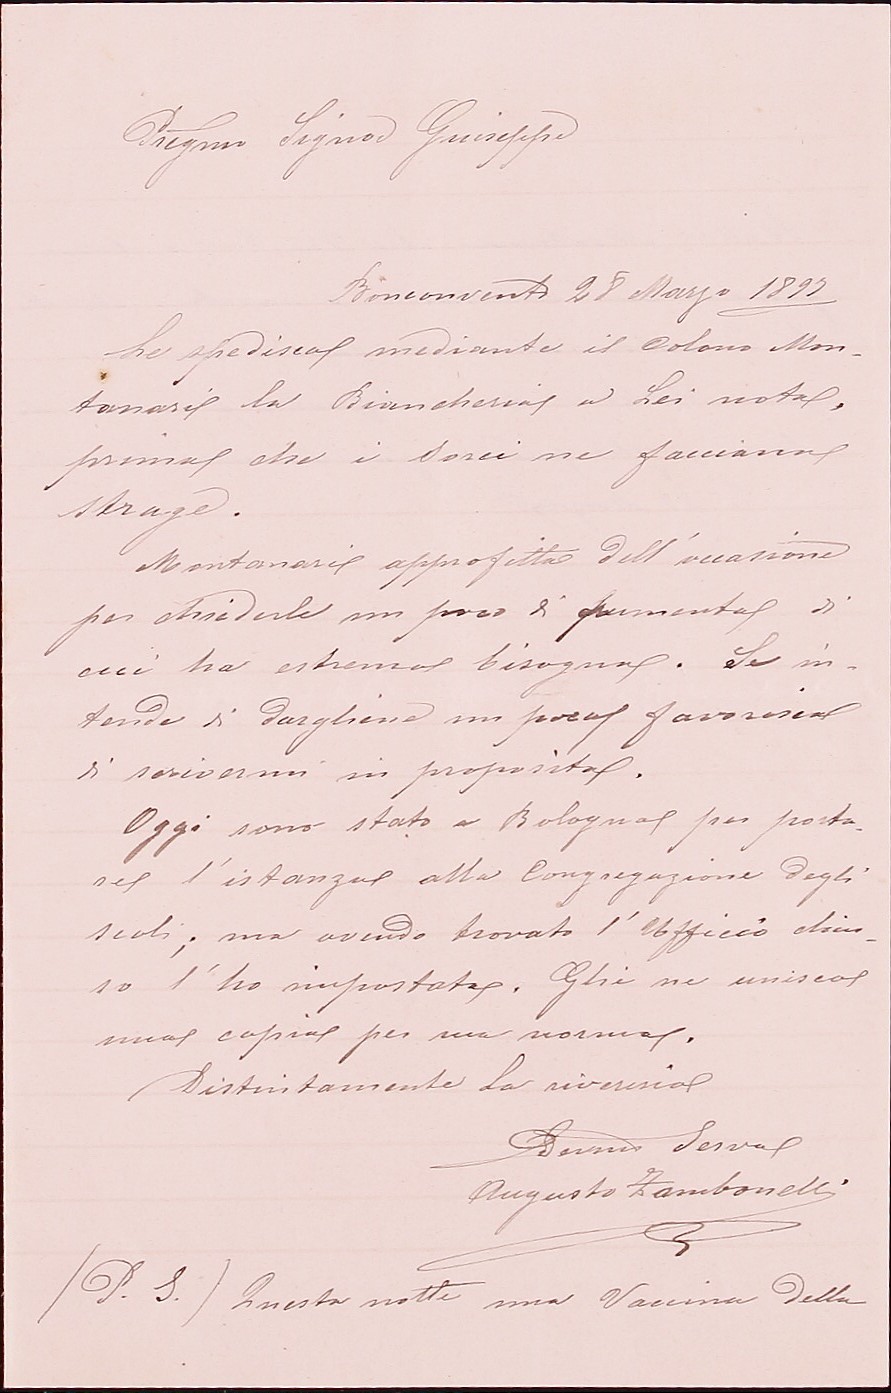 Pregmo Signor Giuseppe
Bonconvento 28 Marzo 1897
Le spedisco mediante il colono Mon-
tanari la Biancheria a Lei nota,
prima che i Sorci ne facciano
strage.
Montanari approfitta dell'occasione
per chiederle un poco di frumento di
cui ha estremo bisogno. Se in-
tende di dargliene un poco favorisca
di scrivermi in proposito.
Oggi sono stato a Bologna per porta-
re l'istanza alla Congregazione degli
scoli, ma avendo trovato l'Ufficio chiu-
so l'ho impostata. Glie ne unisco
una copia per sua norma.
Distintamente La riverisco
Devmo Servo
Augusto Zambonelli
(P. S.) Questa notte una Vaccina della